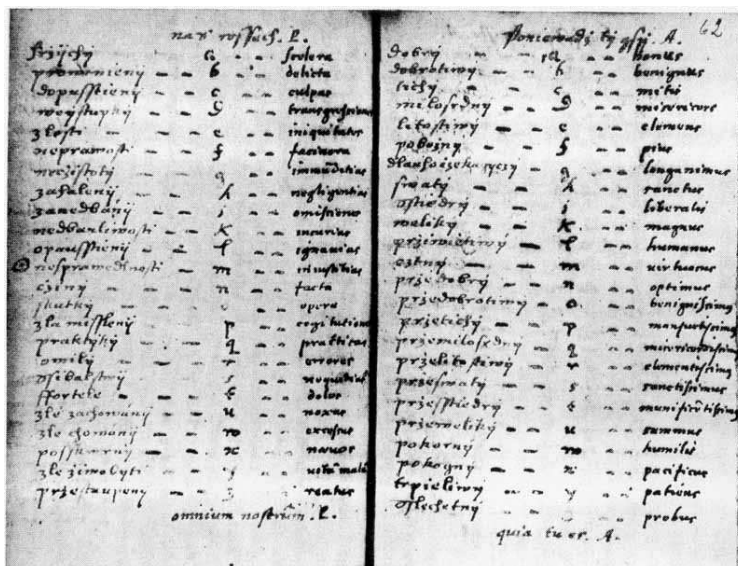 na
dopusstieny — c — culpas
weystupky — d
zlosti — e — iniquitates
neprawosti — f — facinora
neczistoty — g — immuditias
zahaleny — h — negligentias
zanedbany — i — omissiones
nedbanliwosti — k — incurias
opausstieny — l — ignavias
nesprawedlnosti — m — iniustitias
cziny — n — facta
skutky — o — opera
zla missleny — p — cogitationes
praktyky — q — practicas
omily — r — errores
s — nequitias
ffortele — t — dolos
zle zachowany — u — noxas
zle chowany — w — excessus
x
zle ziwobyti — y
przestaupeny — z — reatus
omnium nostrum. L.
62
ty A.
dobry — a — bonus
dobrotiwy — b — benignus
tichy — c — mitis
milosrdny — d — misericors
litostiwy — e — clemens
pobozny — f — pius
g — longanimus
swaty — h — sanctus
sstiedry — i — liberalis
weliky — k — magnus
prziwietiwy — l — humanus
cztny — m — virtuosus
przedobry — n — optimus
przedobrotiwy — o — benignissimus
przetichy — p — mansuetissimus
przemilosrdny — q — misericordissimus
przelitostiwy — r — clementissimus
przeswaty — s — sanctissimus
przesstiedry — t — munificentissimus
przeweliky — u — summus
pokorny — w — humilis
pokogny — x — pacificus
trpieliwy — y — patiens
sslechetny — z — probus
quia tu es. A.